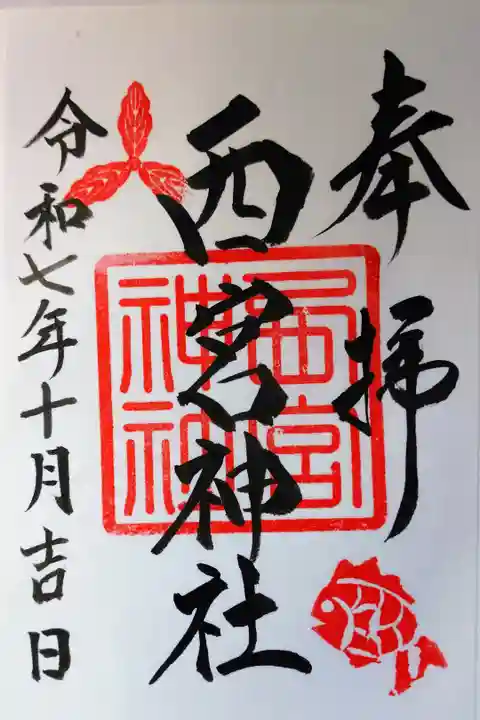 奉拝
西宮神社
西宮
神社
令和七年十月吉日